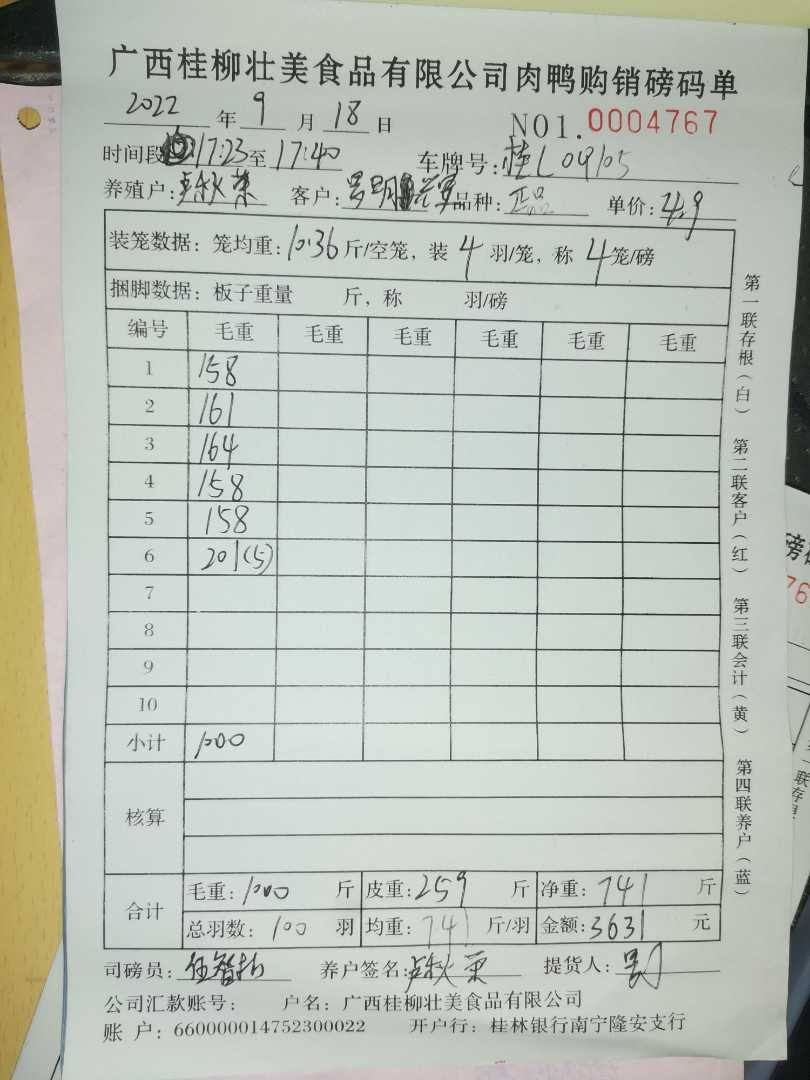 广西桂柳壮美食品有限公司肉鸭购销磅码单
2022 年 9 月 18 日 NO1. 0004767
时间段 17:23 至 17:40 车牌号: 桂L09105
养殖户: 卢秋荣 客户: 品种: 正品 单价: 4.9
装笼数据: 笼均重: 10.36 斤/空笼, 装 4 羽/笼, 称 4 笼/磅
捆脚数据: 板子重量 斤, 称 羽/磅
编号 毛重 毛重 毛重 毛重 毛重 毛重
1 158
2 161
3 164
4 158
5 158
6 201(5)
7
8
9
10
小计 1000
核算
合计 毛重: 1000 斤 皮重: 259 斤 净重: 741 斤
总羽数: 100 羽 均重: 741 斤/羽 金额: 3631 元
司磅员: 养户签名: 卢秋荣 提货人:
公司汇款账号: 户名: 广西桂柳壮美食品有限公司
账 户: 660000014752300022 开户行: 桂林银行南宁隆安支行
第一联存根(白) 第二联客户(红) 第三联会计(黄) 第四联养户(蓝)